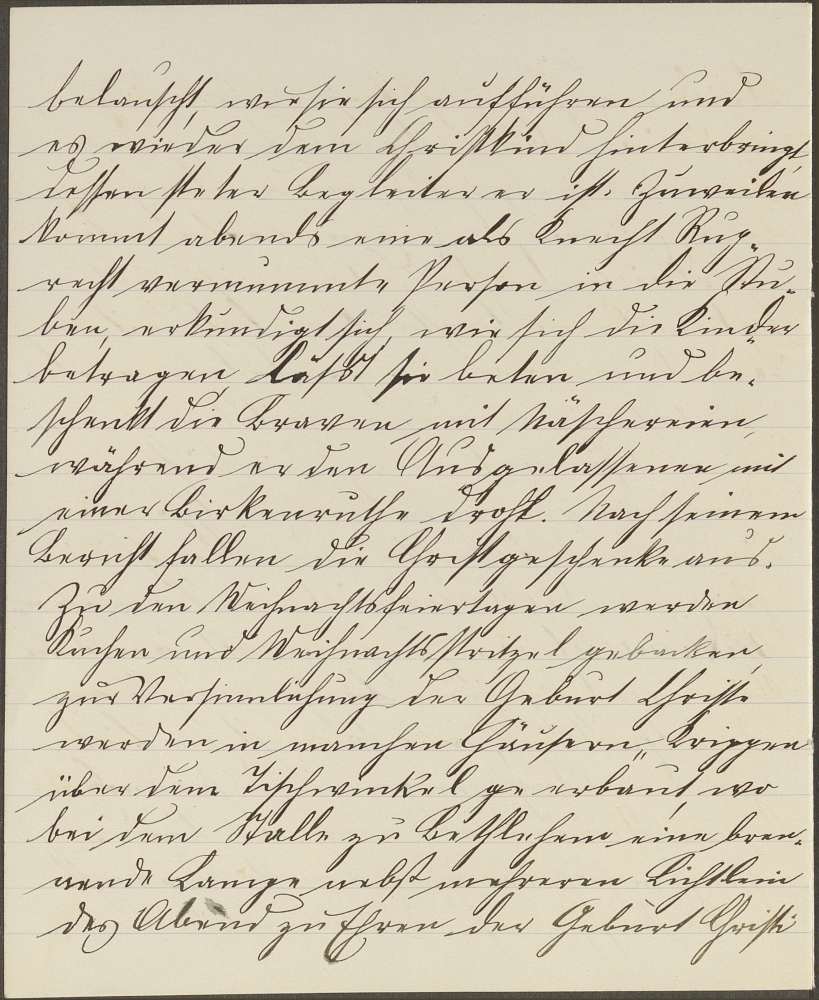 belauscht, wie sie sich aufführen und
es wieder dem Christkind hinterbringt,
dessen steter Begleiter er ist. Zuweilen
kommt abends eine als Knecht Rup-
recht vermummte Person in die Stu-
ben, erkundigt sich, wie sich die Kinder
betragen, läßt sie beten und be-
schenkt die Braven mit Näschereien,
während er den Ausgelassenen mit
einer Birkenruthe droht. Nach seinem
Bericht fallen die Christgeschenke aus.
Zu den Weihnachtsfeiertagen werden
Kuchen und Weihnachtsstritzel gebacken,
zur Versinnlichung der Geburt Christi
werden in manchen Häusern „Krippen
über dem Tischwinkel ge erbaut, wo
bei dem Stalle zu Bethlehem eine bren-
nende Lampe nebst mehreren Lichtlein
des Abend zu Ehren der Geburt Christi